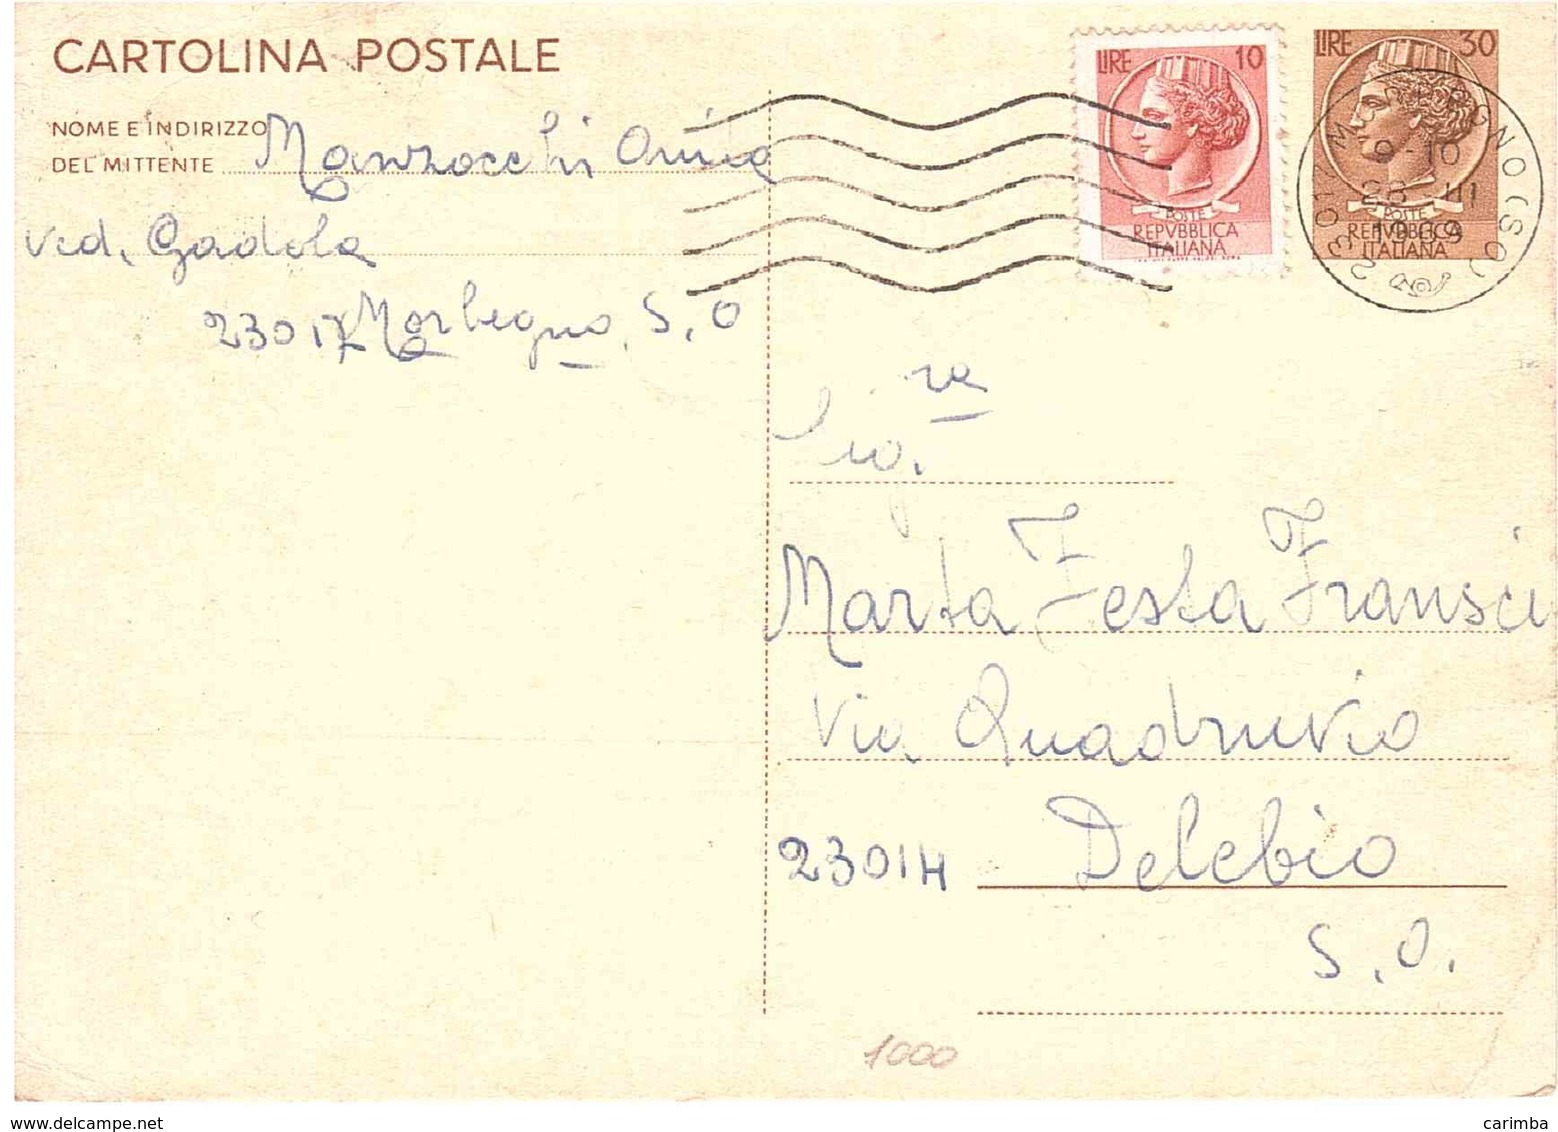 CARTOLINA POSTALE
NOME E INDIRIZZO
DEL MITTENTE Manzocchi
ved. Gadola
23017 Morbegno S.O
LIRE 10
POSTE
REPVBBLICA
ITALIANA
LIRE 30
POSTE
REPVBBLICA
ITALIANA
23017 MORBEGNO (SO)
9-10
Sig.ra
Marta Festa Fransci
Via Quadruvio
23014 Delebio
S.O.
1000
www.delcampe.net
carimba